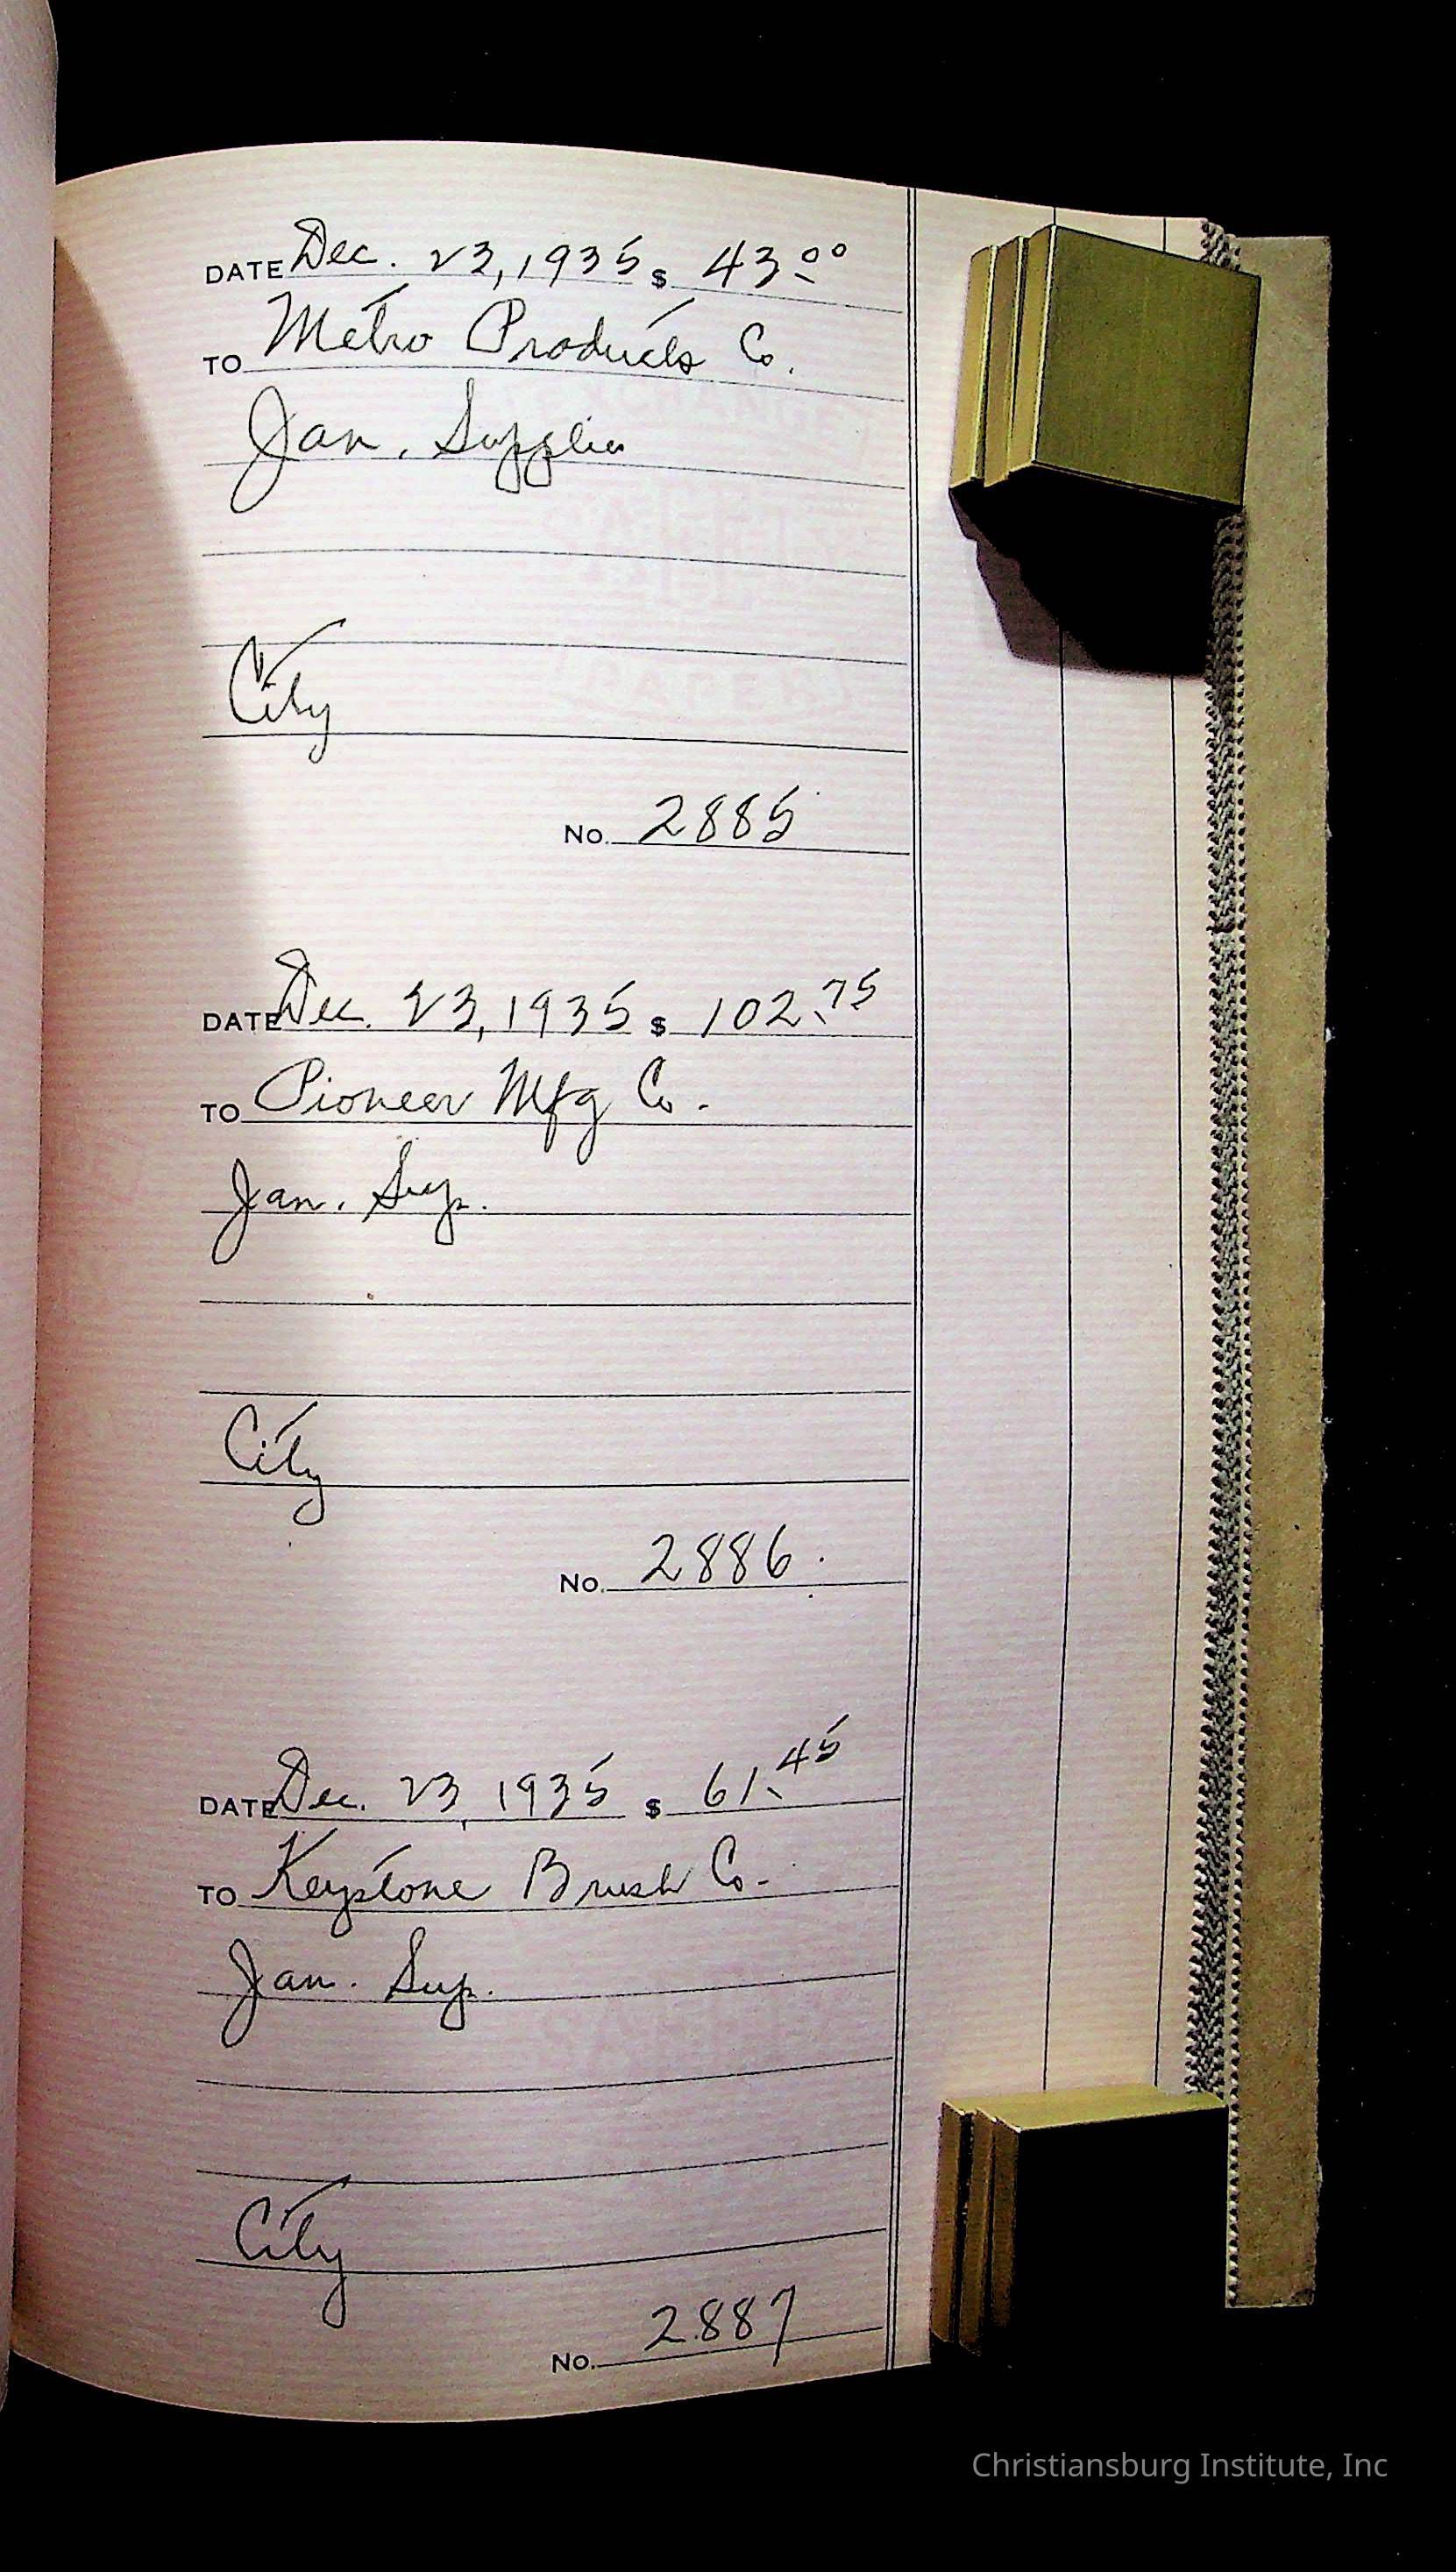 DATE Dec. 23, 1935 $ 43.00
TO Metro Products Co.
Jan. Supplies
City
No. 2885
DATE Dec. 23, 1935 $ 102.75
TO Pioneer Mfg Co.
Jan. Sup.
City
No. 2886
DATE Dec. 23, 1935 $ 61.45
TO Keystone Brush Co.
Jan. Sup.
City
No. 2887
Christiansburg Institute, Inc